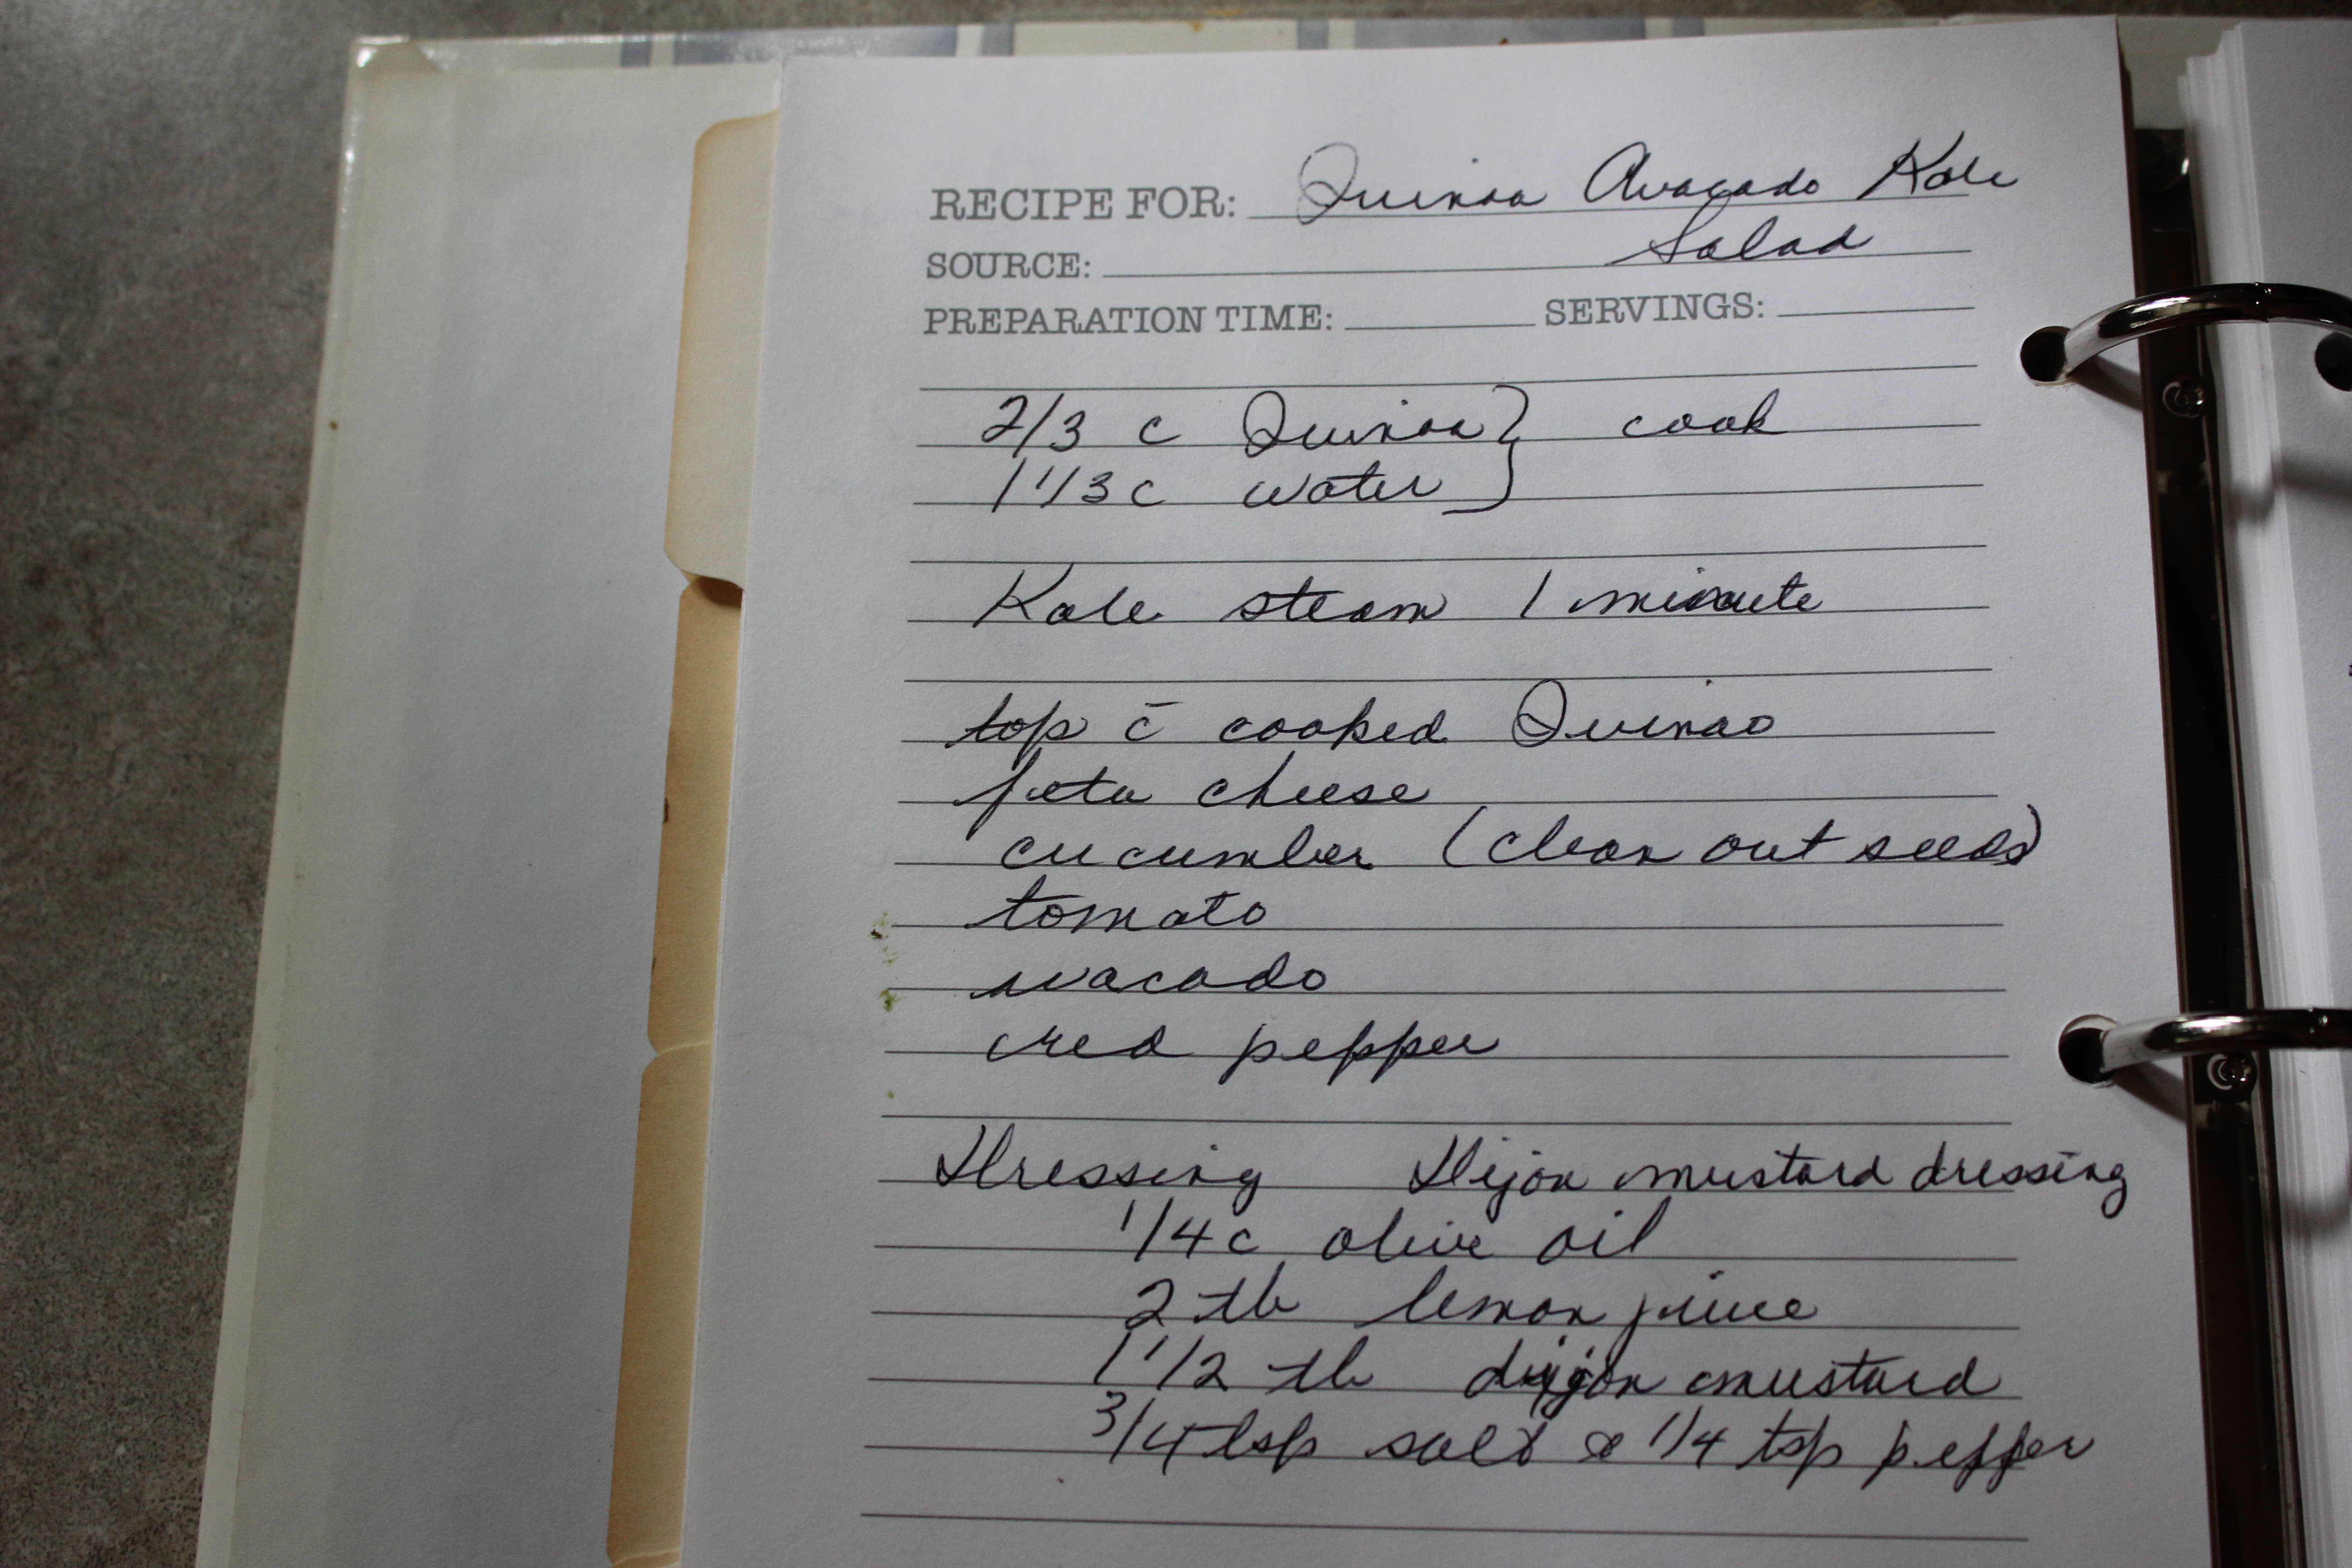 RECIPE FOR: Quinoa Avacado Kale
SOURCE: Salad
PREPARATION TIME: SERVINGS:
2/3 c Quinoa } cook
1 1/3 c water
Kale steam 1 minute
top c̄ cooked Quinao
feta cheese
cucumber (clean out seeds)
tomato
avacado
red pepper
Dressing Dijon mustard dressing
1/4 c olive oil
2 tb lemon juice
1 1/2 tb dijon mustard
3/4 tsp salt & 1/4 tsp pepper